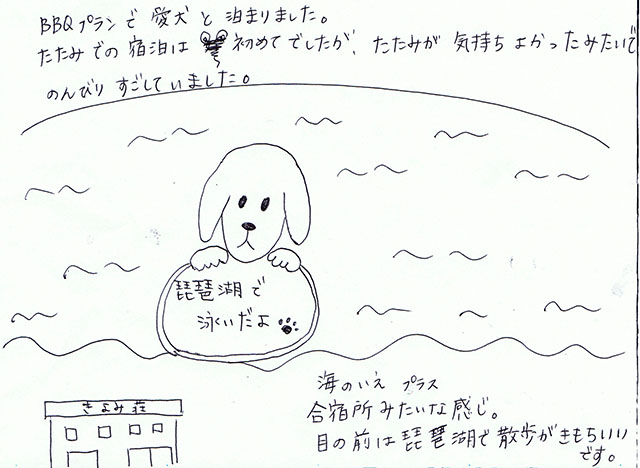 BBQプランで 愛犬と 泊まりました。
たたみでの 宿泊は 初めてでしたが、たたみが 気持ち よかったみたいで
のんびり すごしていました。
琵琶湖で
泳いだよ
海のいえ プラス
合宿所 みたいな 感じ。
目の前は 琵琶湖で 散歩が きもちいい
です。
きよみ荘